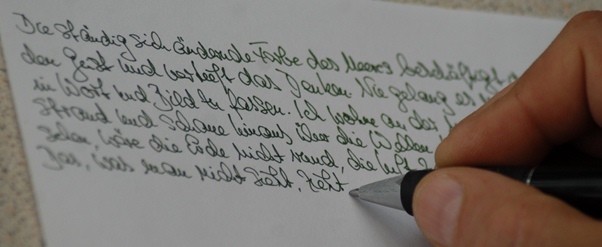 Die ständig sich ändernde Farbe des Meeres beschäftigt
den Geist und das Denken. Nie gelang es
in Wort und Bild zu fassen. Ich wohne an der
Strand und schaue hinaus über die Wellen
sehen, wäre die Erde nicht rund, die Luft
Das, was man nicht sieht, zieht